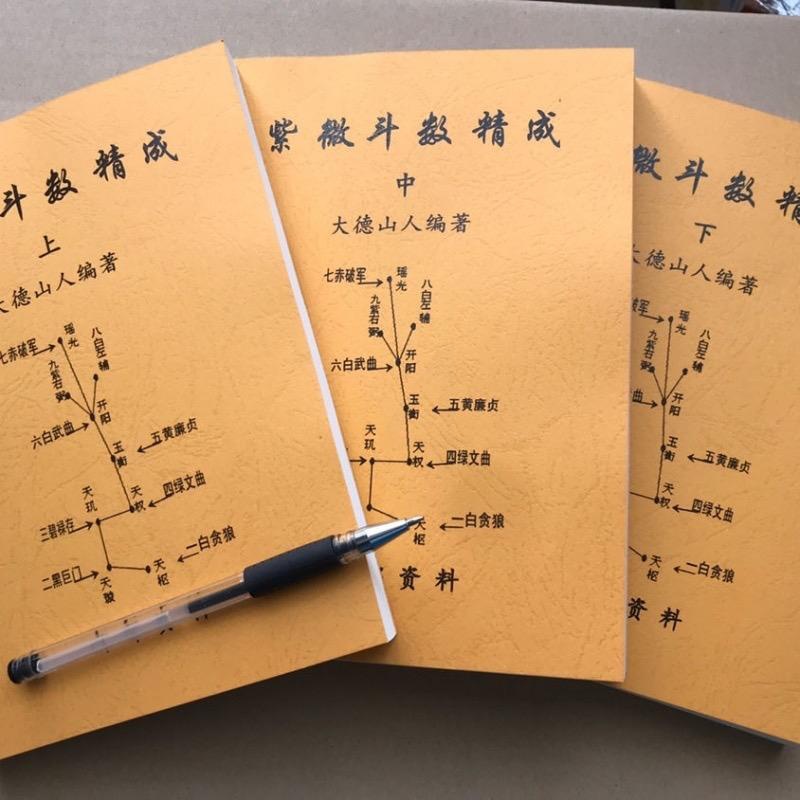 斗数精成
上
大德山人编著
七赤破军
瑶光
八白左辅
九紫右弼
六白武曲
开阳
玉衡
五黄廉贞
天玑
天权
四绿文曲
三碧禄存
二黑巨门
天璇
天枢
一白贪狼
紫微斗数精成
中
大德山人编著
七赤破军
瑶光
八白左辅
九紫右弼
六白武曲
开阳
玉衡
五黄廉贞
天玑
天权
四绿文曲
天枢
一白贪狼
资料
微斗数精
下
大德山人编著
军
瑶光
八白左辅
九紫右弼
曲
开阳
玉衡
五黄廉贞
天权
四绿文曲
天枢
一白贪狼
资料